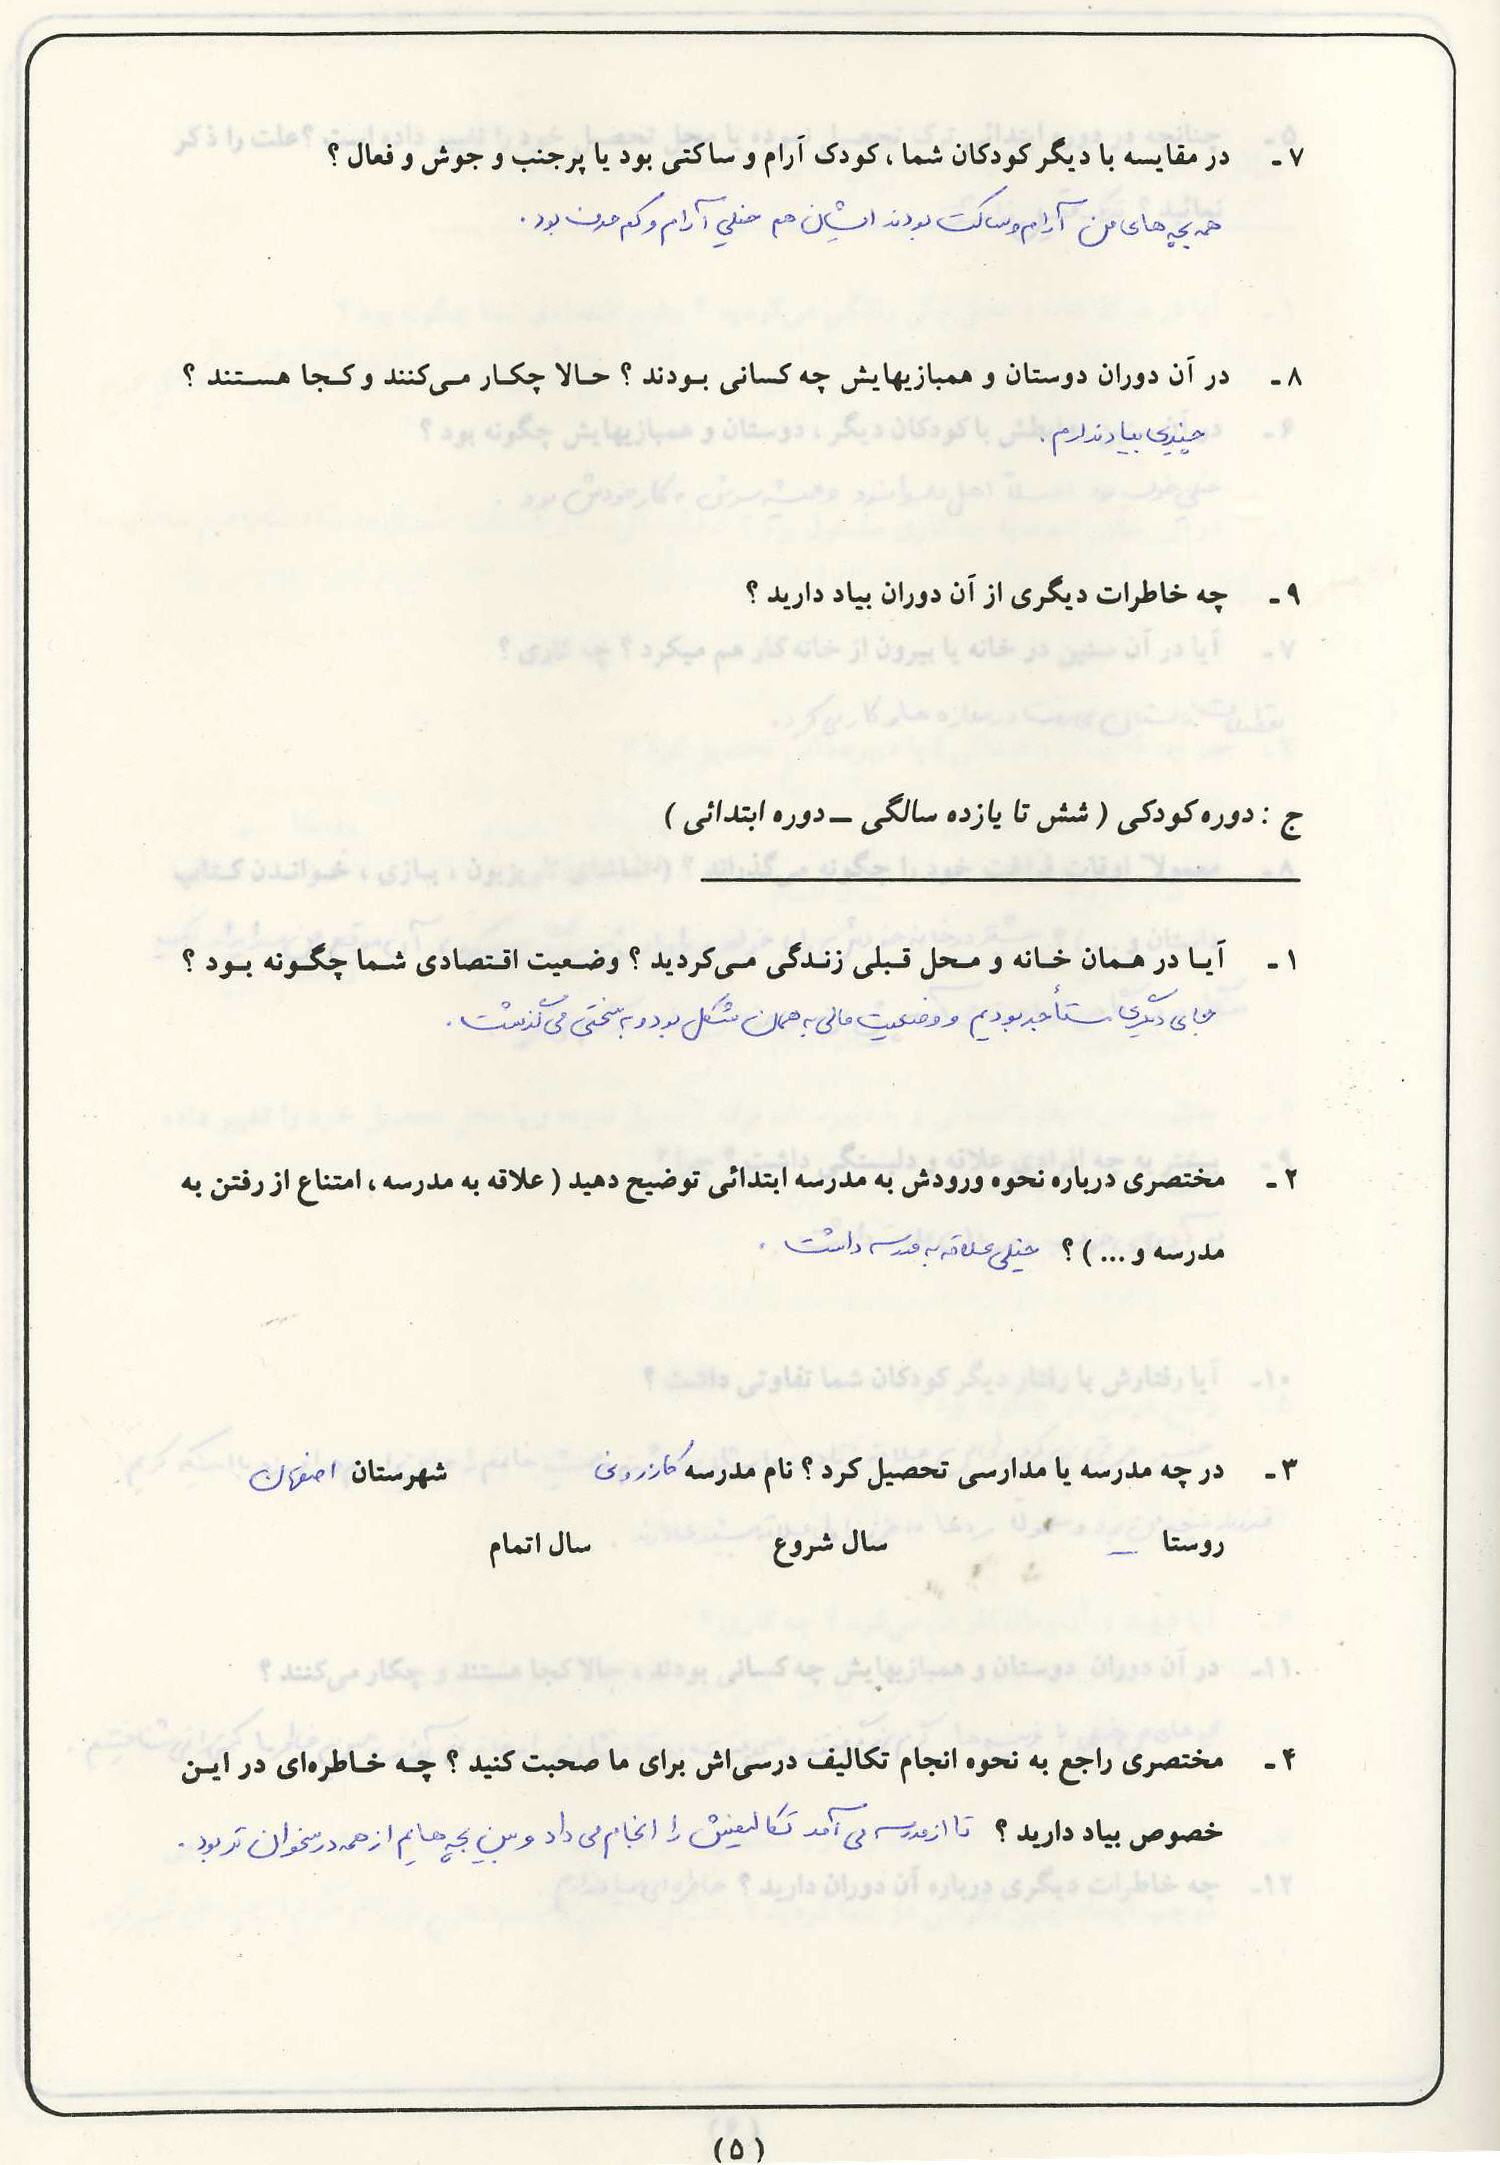 ۷ - در مقایسه با دیگر کودکان شما ، کودک آرام و ساکتی بود یا پرجنب و جوش و فعال ؟
همه بچه های من آرام و ساکت بودند ایشان هم خیلی آرام و کم حرف بود .
۸ - در آن دوران دوستان و همبازیهایش چه کسانی بودند ؟ حالا چکار می‌کنند و کجا هستند ؟
چیزی بیاد ندارم .
۹ - چه خاطرات دیگری از آن دوران بیاد دارید ؟
ج : دوره کودکی ( شش تا یازده سالگی ــ دوره ابتدائی )
۱ - آیا در همان خانه و محل قبلی زندگی می‌کردید ؟ وضعیت اقتصادی شما چگونه بود ؟
جای دیگری مستأجر بودیم و وضعیت مالی به همان شکل بود و به سختی می گذشت .
۲ - مختصری درباره نحوه ورودش به مدرسه ابتدائی توضیح دهید ( علاقه به مدرسه ، امتناع از رفتن به
مدرسه و ... ) ؟ خیلی علاقه به مدرسه داشت .
۳ - در چه مدرسه یا مدارسی تحصیل کرد ؟ نام مدرسه کازرونی شهرستان اصفهان
روستا — سال شروع سال اتمام
۴ - مختصری راجع به نحوه انجام تکالیف درسی‌اش برای ما صحبت کنید ؟ چه خاطره‌ای در این
خصوص بیاد دارید ؟ تا از مدرسه می آمد تکالیفش را انجام می داد و بین بچه هایم از همه درسخوان تر بود .
(۵)